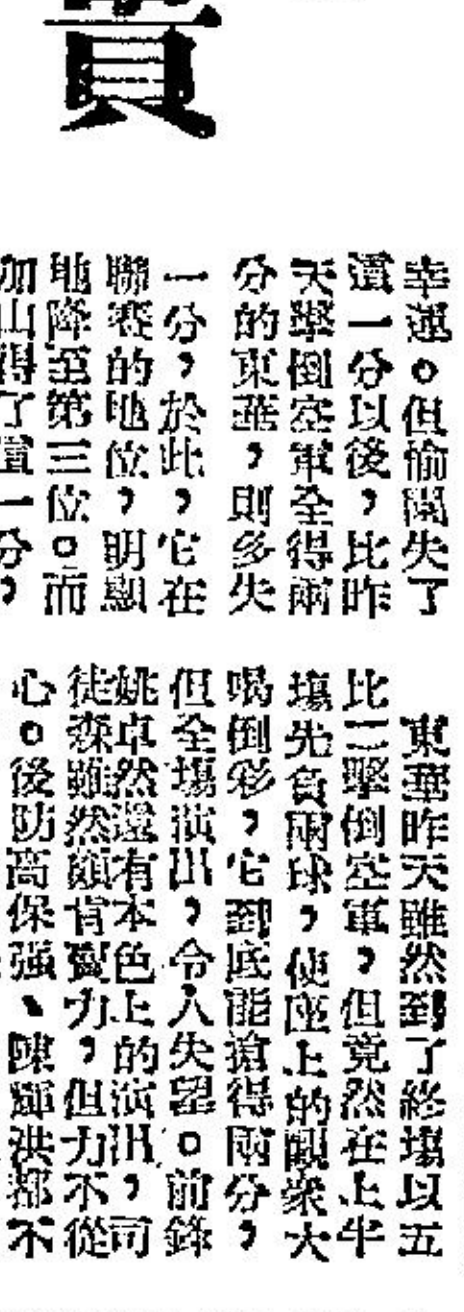 責
幸運。但愉園失了
這一分以後,比昨
天擊倒空軍全得兩
分的東華,則多失
一分,於此,它在
聯賽的地位,明顯
地降至第三位。而
加山得了這一分,
東華昨天雖然到了終場以五
比二擊倒空軍,但竟然在上半
塲先負兩球,使座上的觀衆大
喝倒彩,它到底能搶得兩分,
但全塲演出,令人失望。前鋒
姚卓然還有本色上的演出,司
徒森雖然頗肯賣力,但力不從
心。後防高保強、陳輝洪都不